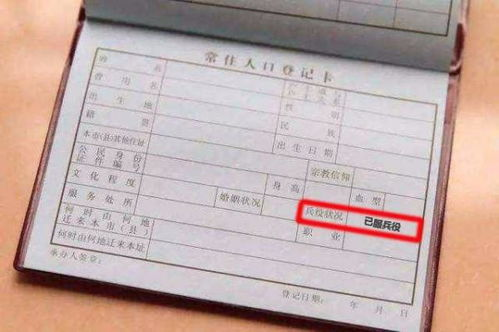 常住人口登记卡
姓 名
曾 用 名 性 别
出 生 地 民 族
籍 贯 出生日期
本市(县)其他住址 宗教信仰
公民身份证件编号 身 高 血 型
文化程度 婚姻状况 兵役状况 已服兵役
服务处所 职 业
何时由何地迁来本市(县)
何时由何地迁来本址
承办人签章: 登记日期: 年 月 日